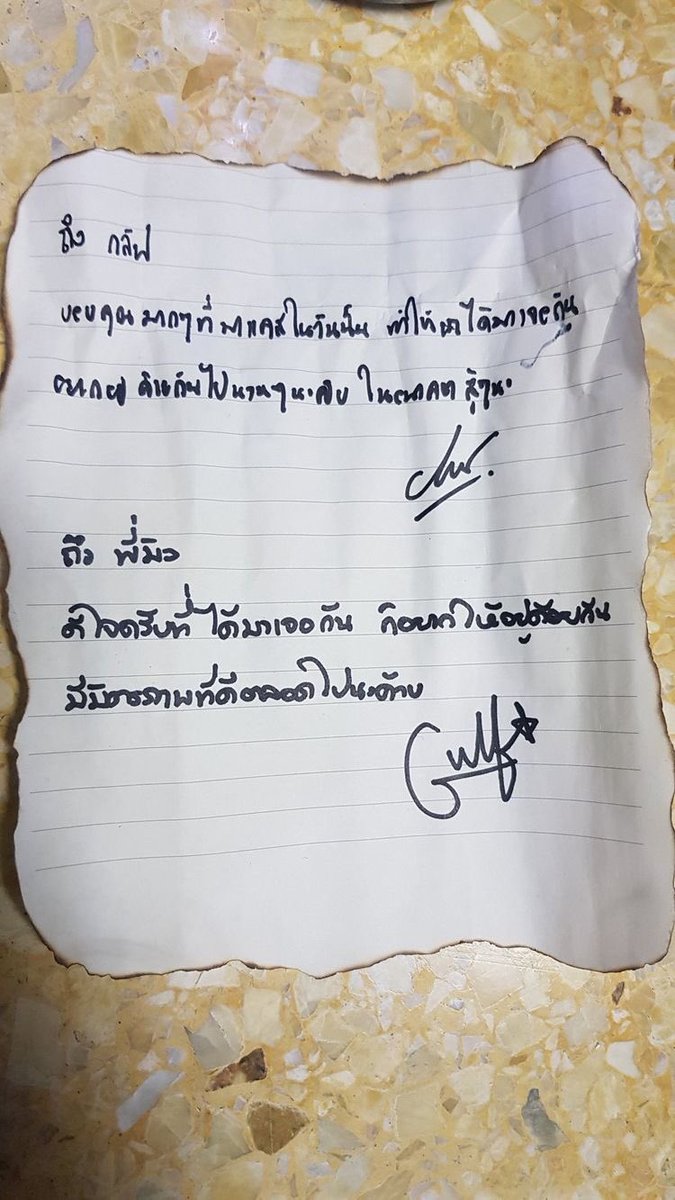 ถึง กลัฟ
ขอบคุณมากๆที่มาแคสในวันนั้น ทำให้เราได้มาเจอกัน
อยาก กันไปนานๆนะครับ ในอนาคต สู้ๆนะ
ถึง พี่มิว
ดีใจครับที่ได้มาเจอกัน ก็อยากให้อยู่ด้วยกัน
มีมิตรภาพที่ดีตลอดไปนะค้าบ
Gulf